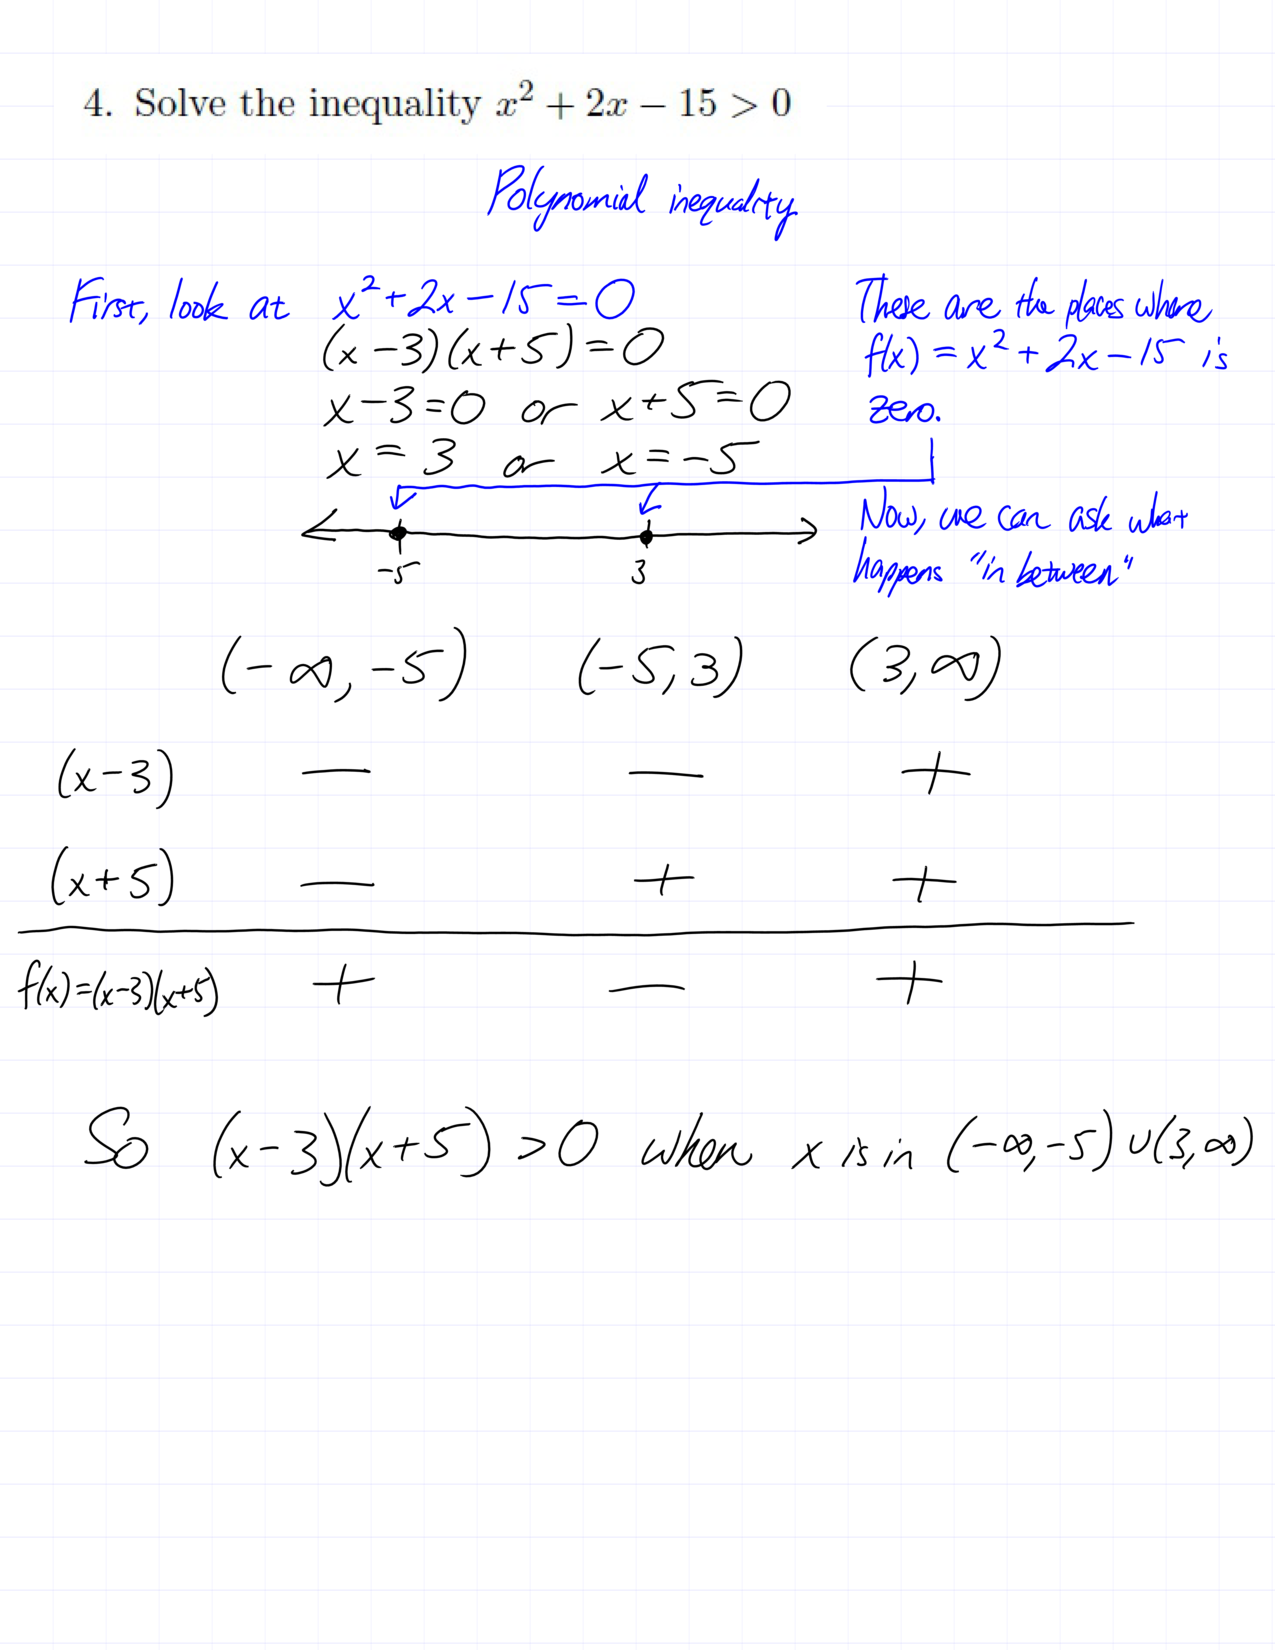 4. Solve the inequality x² + 2x − 15 > 0
Polynomial inequality
First, look at x² + 2x − 15 = 0
(x − 3)(x + 5) = 0
x − 3 = 0 or x + 5 = 0
x = 3 or x = −5
These are the places where
f(x) = x² + 2x − 15 is
zero.
Now, we can ask what
happens "in between"
−5 3
(−∞, −5) (−5, 3) (3, ∞)
(x − 3) − − +
(x + 5) − + +
f(x) = (x−3)(x+5) + − +
So (x − 3)(x + 5) > 0 when x is in (−∞, −5) ∪ (3, ∞)